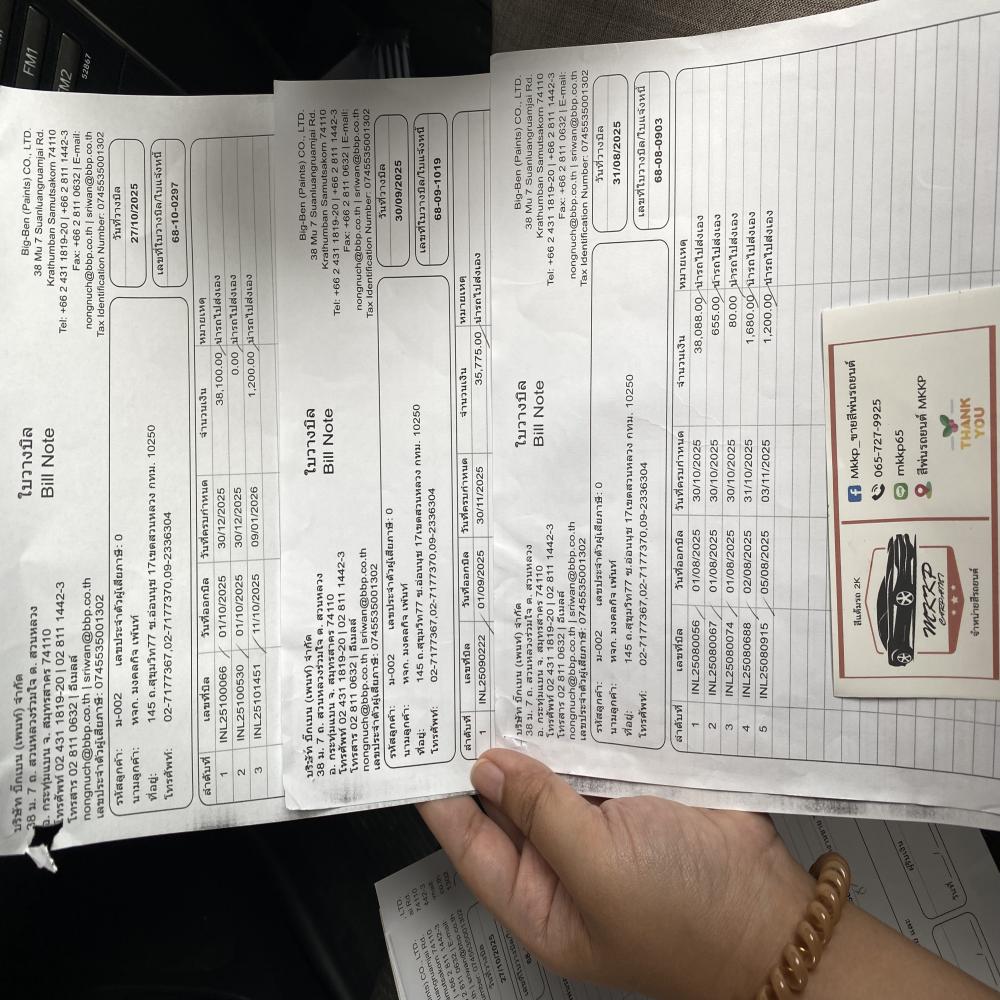 FM1
FM2
52867
บริษัท บิ๊กเบน (เพนท์) จำกัด
38 ม. 7 ถ. สวนหลวงร่วมใจ ต. สวนหลวง
อ. กระทุ่มแบน จ. สมุทรสาคร 74110
โทรศัพท์ 02 431 1819-20 | 02 811 1442-3
โทรสาร 02 811 0632 | อีเมลล์
nongnuch@bbp.co.th | sriwan@bbp.co.th
เลขประจำตัวผู้เสียภาษี: 0745535001302
ใบวางบิล
Bill Note
Big-Ben (Paints) CO., LTD.
38 Mu 7 Suanluangruamjai Rd.
Krathumban Samutsakorn 74110
Tel: +66 2 431 1819-20 | +66 2 811 1442-3
Fax: +66 2 811 0632 | E-mail:
nongnuch@bbp.co.th | sriwan@bbp.co.th
Tax Identification Number: 0745535001302
รหัสลูกค้า: ม-002 เลขประจำตัวผู้เสียภาษี: 0
นามลูกค้า: หจก. มงคลกิจ เพ้นท์
ที่อยู่: 145 ถ.สุขุมวิท77 ซ.อ่อนนุช 17เขตสวนหลวง กทม. 10250
โทรศัพท์: 02-7177367,02-7177370,09-2336304
วันที่วางบิล
27/10/2025
เลขที่ใบวางบิล/ใบแจ้งหนี้
68-10-0297
ลำดับที่ เลขที่บิล วันที่ออกบิล วันที่ครบกำหนด จำนวนเงิน หมายเหตุ
1 INL25100066 01/10/2025 30/12/2025 38,100.00 นำรถไปส่งเอง
2 INL25100530 01/10/2025 30/12/2025 0.00 นำรถไปส่งเอง
3 INL25101451 11/10/2025 09/01/2026 1,200.00 นำรถไปส่งเอง
บริษัท บิ๊กเบน (เพนท์) จำกัด
38 ม. 7 ถ. สวนหลวงร่วมใจ ต. สวนหลวง
อ. กระทุ่มแบน จ. สมุทรสาคร 74110
โทรศัพท์ 02 431 1819-20 | 02 811 1442-3
โทรสาร 02 811 0632 | อีเมลล์
nongnuch@bbp.co.th | sriwan@bbp.co.th
เลขประจำตัวผู้เสียภาษี: 0745535001302
ใบวางบิล
Bill Note
Big-Ben (Paints) CO., LTD.
38 Mu 7 Suanluangruamjai Rd.
Krathumban Samutsakorn 74110
Tel: +66 2 431 1819-20 | +66 2 811 1442-3
Fax: +66 2 811 0632 | E-mail:
nongnuch@bbp.co.th | sriwan@bbp.co.th
Tax Identification Number: 0745535001302
รหัสลูกค้า: ม-002 เลขประจำตัวผู้เสียภาษี: 0
นามลูกค้า: หจก. มงคลกิจ เพ้นท์
ที่อยู่: 145 ถ.สุขุมวิท77 ซ.อ่อนนุช 17เขตสวนหลวง กทม. 10250
โทรศัพท์: 02-7177367,02-7177370,09-2336304
วันที่วางบิล
30/09/2025
เลขที่ใบวางบิล/ใบแจ้งหนี้
68-09-1019
ลำดับที่ เลขที่บิล วันที่ออกบิล วันที่ครบกำหนด จำนวนเงิน หมายเหตุ
1 INL25090222 01/09/2025 30/11/2025 35,775.00 นำรถไปส่งเอง
บริษัท บิ๊กเบน (เพนท์) จำกัด
38 ม. 7 ถ. สวนหลวงร่วมใจ ต. สวนหลวง
อ. กระทุ่มแบน จ. สมุทรสาคร 74110
โทรศัพท์ 02 431 1819-20 | 02 811 1442-3
โทรสาร 02 811 0632 | อีเมลล์
nongnuch@bbp.co.th | sriwan@bbp.co.th
เลขประจำตัวผู้เสียภาษี: 0745535001302
ใบวางบิล
Bill Note
Big-Ben (Paints) CO., LTD.
38 Mu 7 Suanluangruamjai Rd.
Krathumban Samutsakorn 74110
Tel: +66 2 431 1819-20 | +66 2 811 1442-3
Fax: +66 2 811 0632 | E-mail:
nongnuch@bbp.co.th | sriwan@bbp.co.th
Tax Identification Number: 0745535001302
รหัสลูกค้า: ม-002 เลขประจำตัวผู้เสียภาษี: 0
นามลูกค้า: หจก. มงคลกิจ เพ้นท์
ที่อยู่: 145 ถ.สุขุมวิท77 ซ.อ่อนนุช 17เขตสวนหลวง กทม. 10250
โทรศัพท์: 02-7177367,02-7177370,09-2336304
วันที่วางบิล
31/08/2025
เลขที่ใบวางบิล/ใบแจ้งหนี้
68-08-0903
ลำดับที่ เลขที่บิล วันที่ออกบิล วันที่ครบกำหนด จำนวนเงิน หมายเหตุ
1 INL25080056 01/08/2025 30/10/2025 38,088.00 นำรถไปส่งเอง
2 INL25080067 01/08/2025 30/10/2025 655.00 นำรถไปส่งเอง
3 INL25080074 01/08/2025 30/10/2025 80.00 นำรถไปส่งเอง
4 INL25080688 02/08/2025 31/10/2025 1,680.00 นำรถไปส่งเอง
5 INL25080915 05/08/2025 03/11/2025 1,200.00 นำรถไปส่งเอง
สีแต้มรถ 2K
MKKP
จำหน่ายสีรถยนต์
Mkkp_ขายสีพ่นรถยนต์
065-727-9925
mkkp65
สีพ่นรถยนต์ MKKP
THANK
YOU
27/10/2025